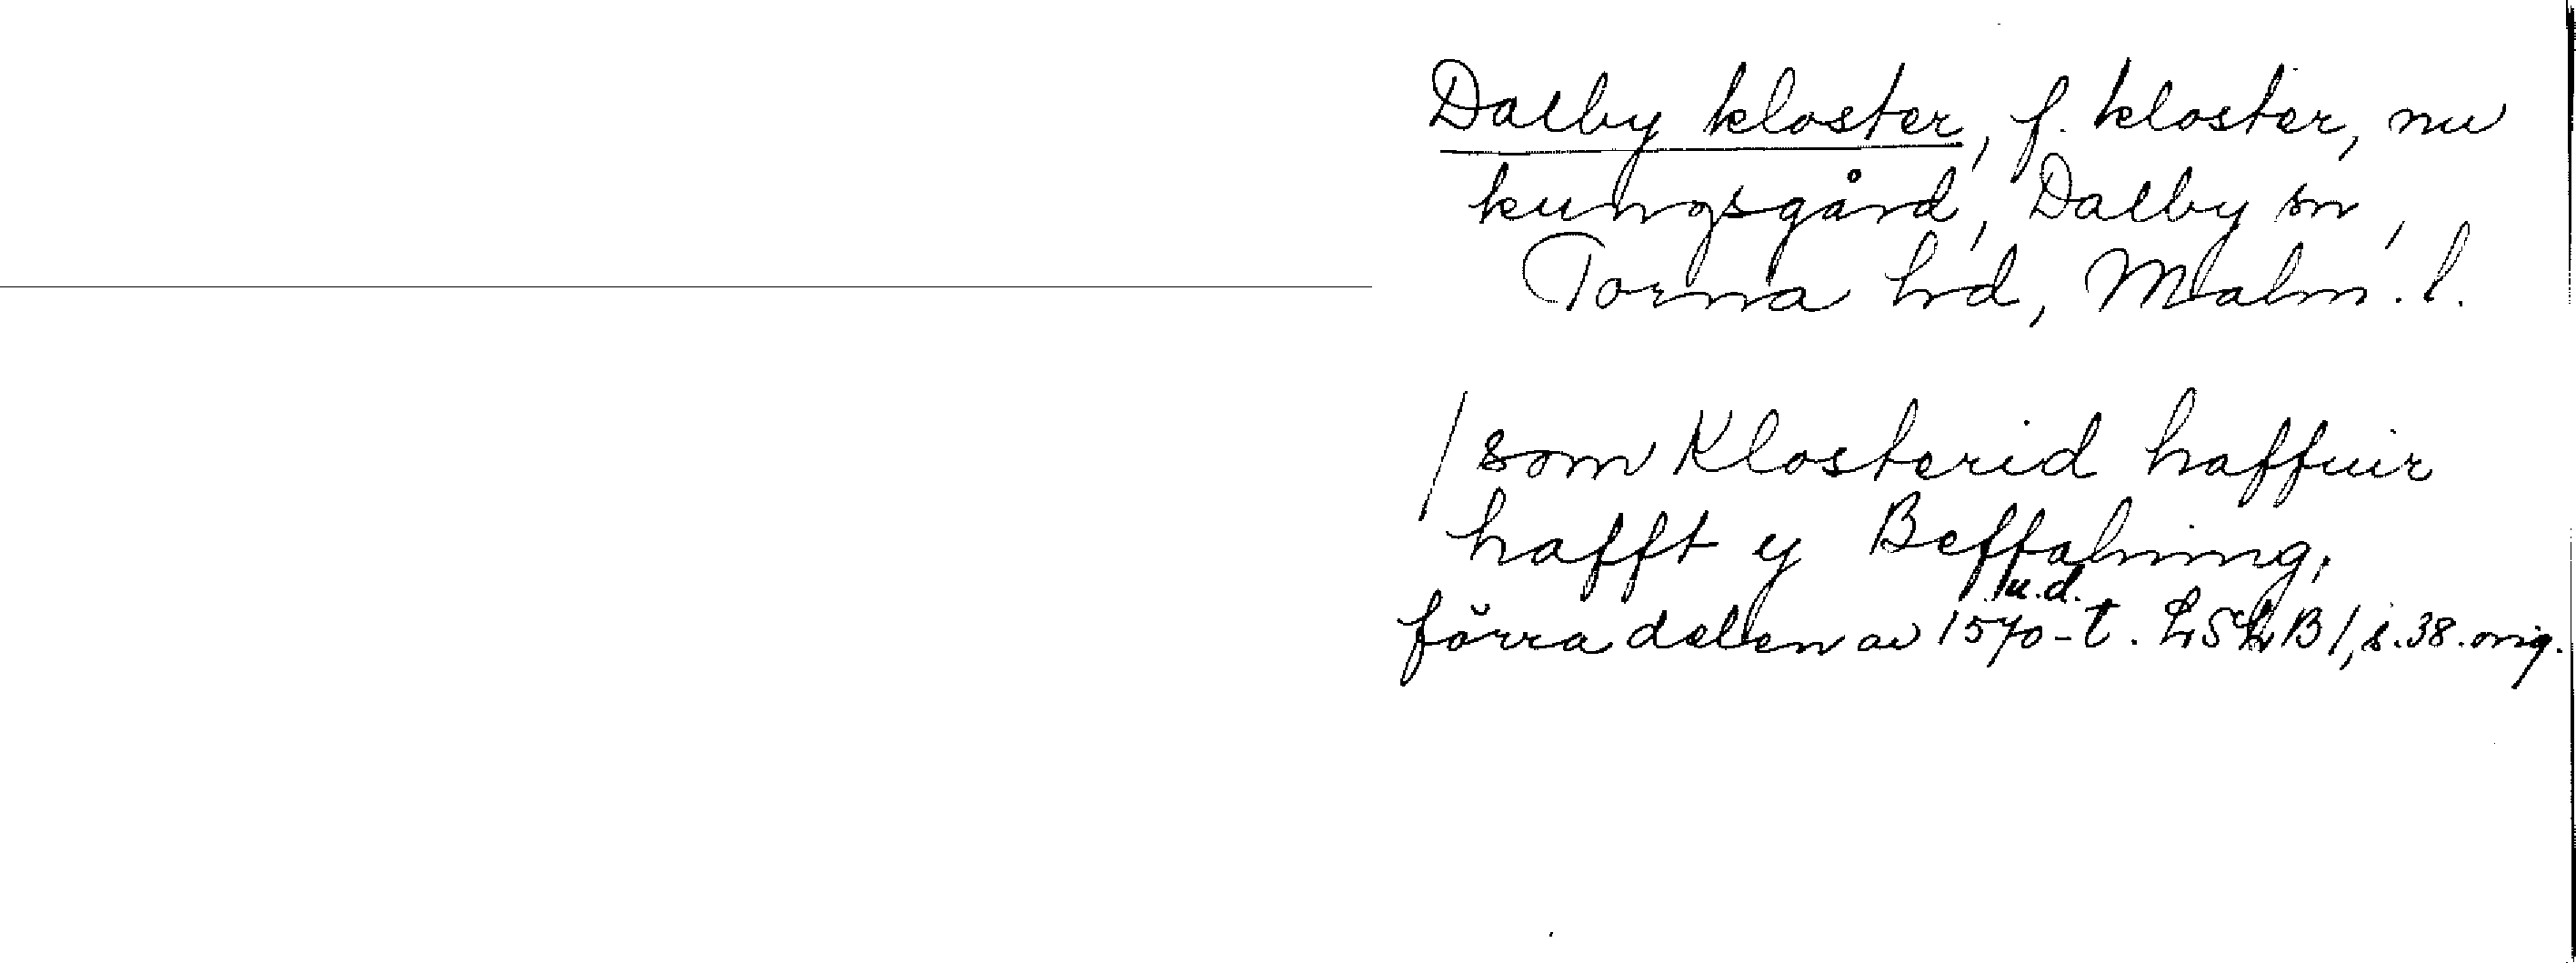 Dalby kloster, f. kloster, nu
kungsgård, Dalby sn,
Torna hd, Malm. l.
/ som Klosterid haffuir
hafft y Beffalning,
u.d.
förra delen av 1570-t. LSLB 1, s. 38. orig.